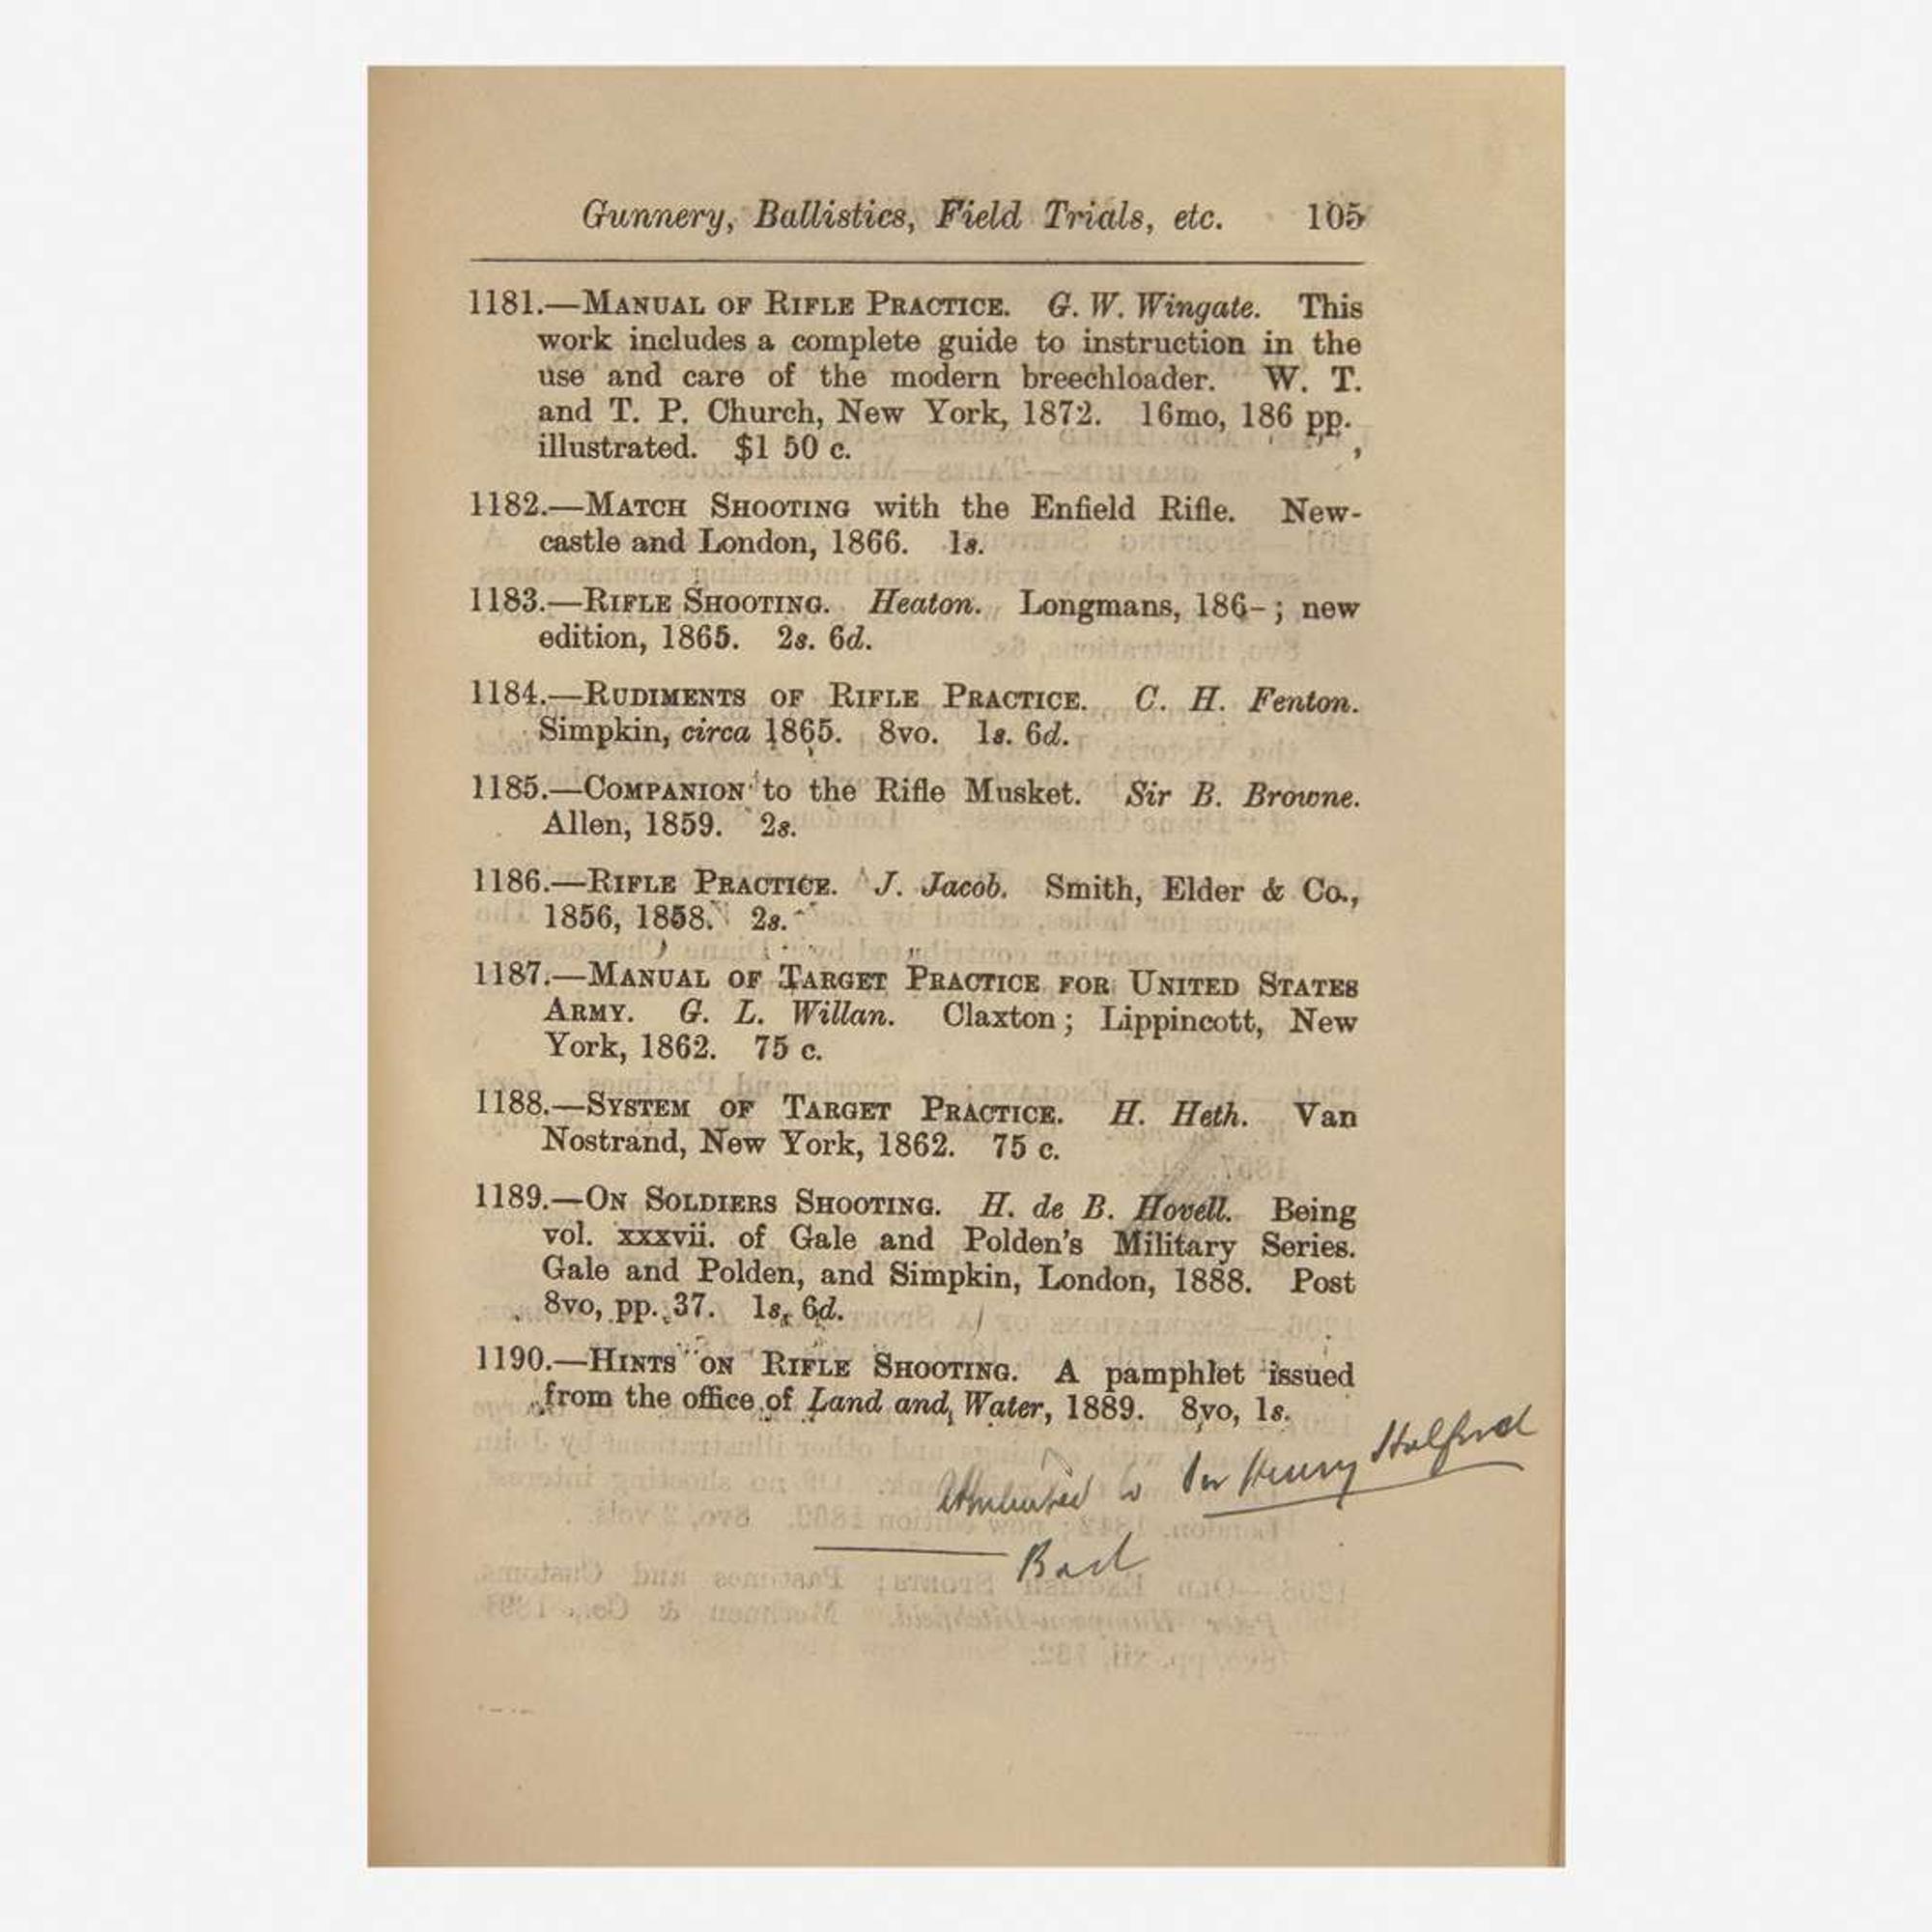 Gunnery, Ballistics, Field Trials, etc. 105
1181.—MANUAL OF RIFLE PRACTICE. G. W. Wingate. This
work includes a complete guide to instruction in the
use and care of the modern breechloader. W. T.
and T. P. Church, New York, 1872. 16mo, 186 pp.
illustrated. $1 50 c.
1182.—MATCH SHOOTING with the Enfield Rifle. New-
castle and London, 1866. 1s.
1183.—RIFLE SHOOTING. Heaton. Longmans, 186-; new
edition, 1865. 2s. 6d.
1184.—RUDIMENTS OF RIFLE PRACTICE. C. H. Fenton.
Simpkin, circa 1865. 8vo. 1s. 6d.
1185.—COMPANION to the Rifle Musket. Sir B. Browne.
Allen, 1859. 2s.
1186.—RIFLE PRACTICE. J. Jacob. Smith, Elder & Co.,
1856, 1858. 2s.
1187.—MANUAL OF TARGET PRACTICE FOR UNITED STATES
ARMY. G. L. Willan. Claxton; Lippincott, New
York, 1862. 75 c.
1188.—SYSTEM OF TARGET PRACTICE. H. Heth. Van
Nostrand, New York, 1862. 75 c.
1189.—ON SOLDIERS SHOOTING. H. de B. Hovell. Being
vol. xxxvii. of Gale and Polden's Military Series.
Gale and Polden, and Simpkin, London, 1888. Post
8vo, pp. 37. 1s. 6d.
1190.—HINTS ON RIFLE SHOOTING. A pamphlet issued
from the office of Land and Water, 1889. 8vo, 1s.
Attributed to Sir Henry Halford
Bart